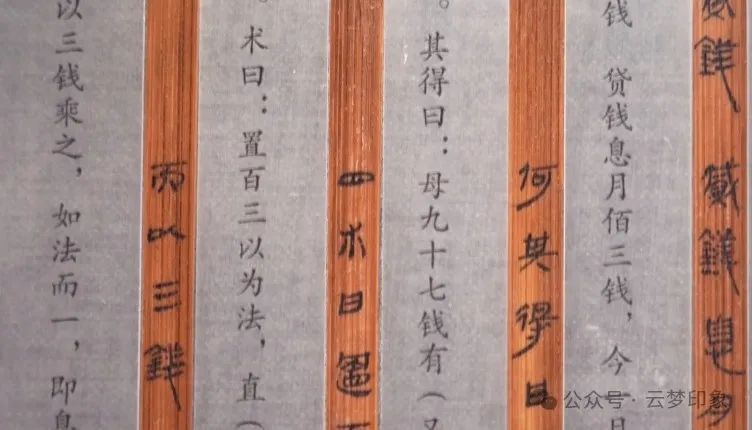 貣錢 貣錢息月
钱 贷钱息月佰三钱，今一月
何其得曰
。其得曰：母九十七钱有（又
四术曰置百
。术曰：置百三以为法，直（
而以三錢
以三钱乘之，如法而一，即息
公众号·云梦印象